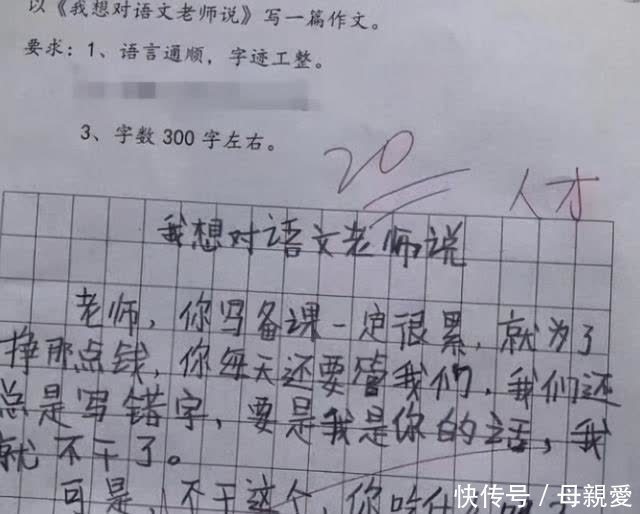 以《我想对语文老师说》写一篇作文。
要求：1、语言通顺，字迹工整。
3、字数300字左右。
20
人才
我想对语文老师说
老师，你写备课一定很累，就为了
挣那点钱，你每天还要管我们，我们还
总是写错字，要是我是你的话，我
就不干了。
可是，不干这个，你吃什么
快传号/母親愛